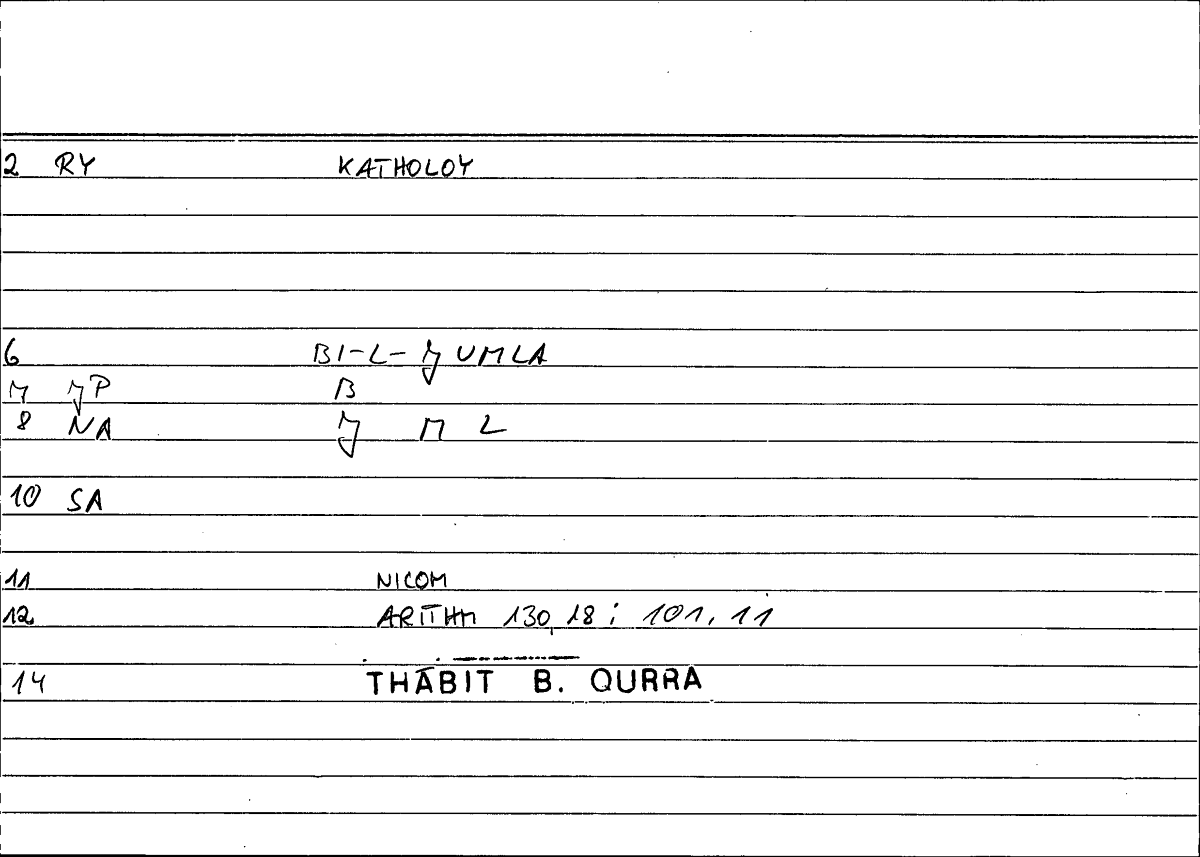 2 RY KATHOLOY
6 BI-L-JUMLA
7 JP B
8 NA J M L
10 SA
11 NICOM
12 ARITHM 130,18; 101,11
14 THĀBIT B. QURRA